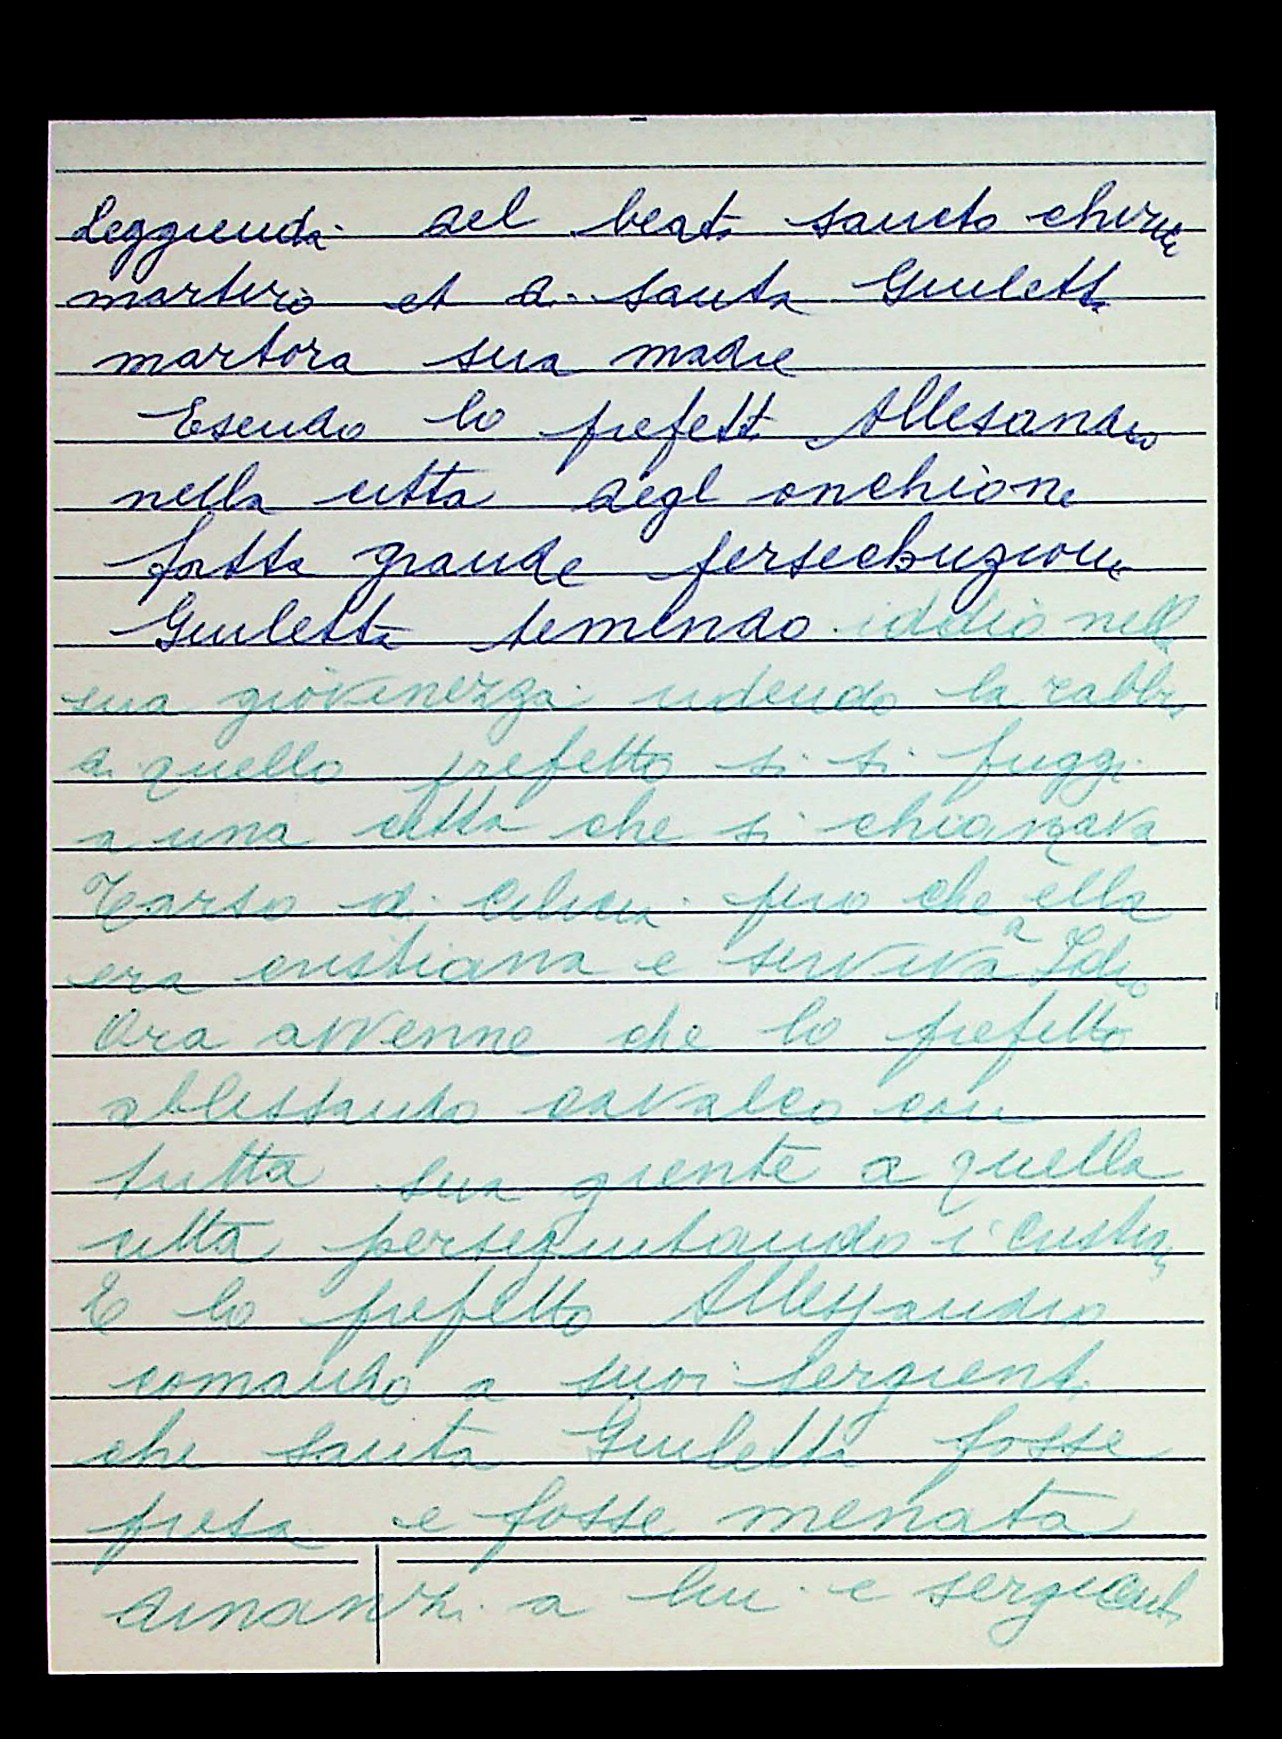 Leggienda del beato sancto chirici
martiro et di santa Giuletta
martora sua madre
Esendo lo prefetto Allesandro
nella citta degl onchione
fatta grande persechuzione
Giuletta temendo iddio nella
sua giovinezza udendo la rabbia
di quello prefetto si si fuggi
a una citta che si chiamava
Tarso di Cilicia pero che ella
era cristiana e serviva a Idio
Ora avvenne che lo prefetto
cavalco con
tutta sua giente a quella
citta perseguitando i cristiani
E lo prefetto Allessandro
comando a suoi sergienti
che santa Giuletta fosse
presa e fosse menata
dinanzi a lui e sergienti